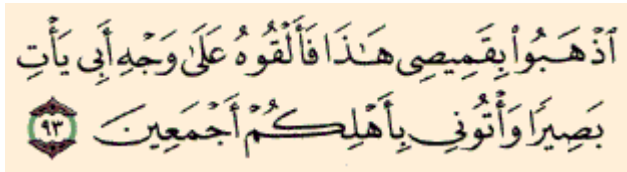 ٱذْهَبُوا۟ بِقَمِيصِى هَـٰذَا فَأَلْقُوهُ عَلَىٰ وَجْهِ أَبِى يَأْتِ
بَصِيرًا وَأْتُونِى بِأَهْلِكُمْ أَجْمَعِينَ ٩٣